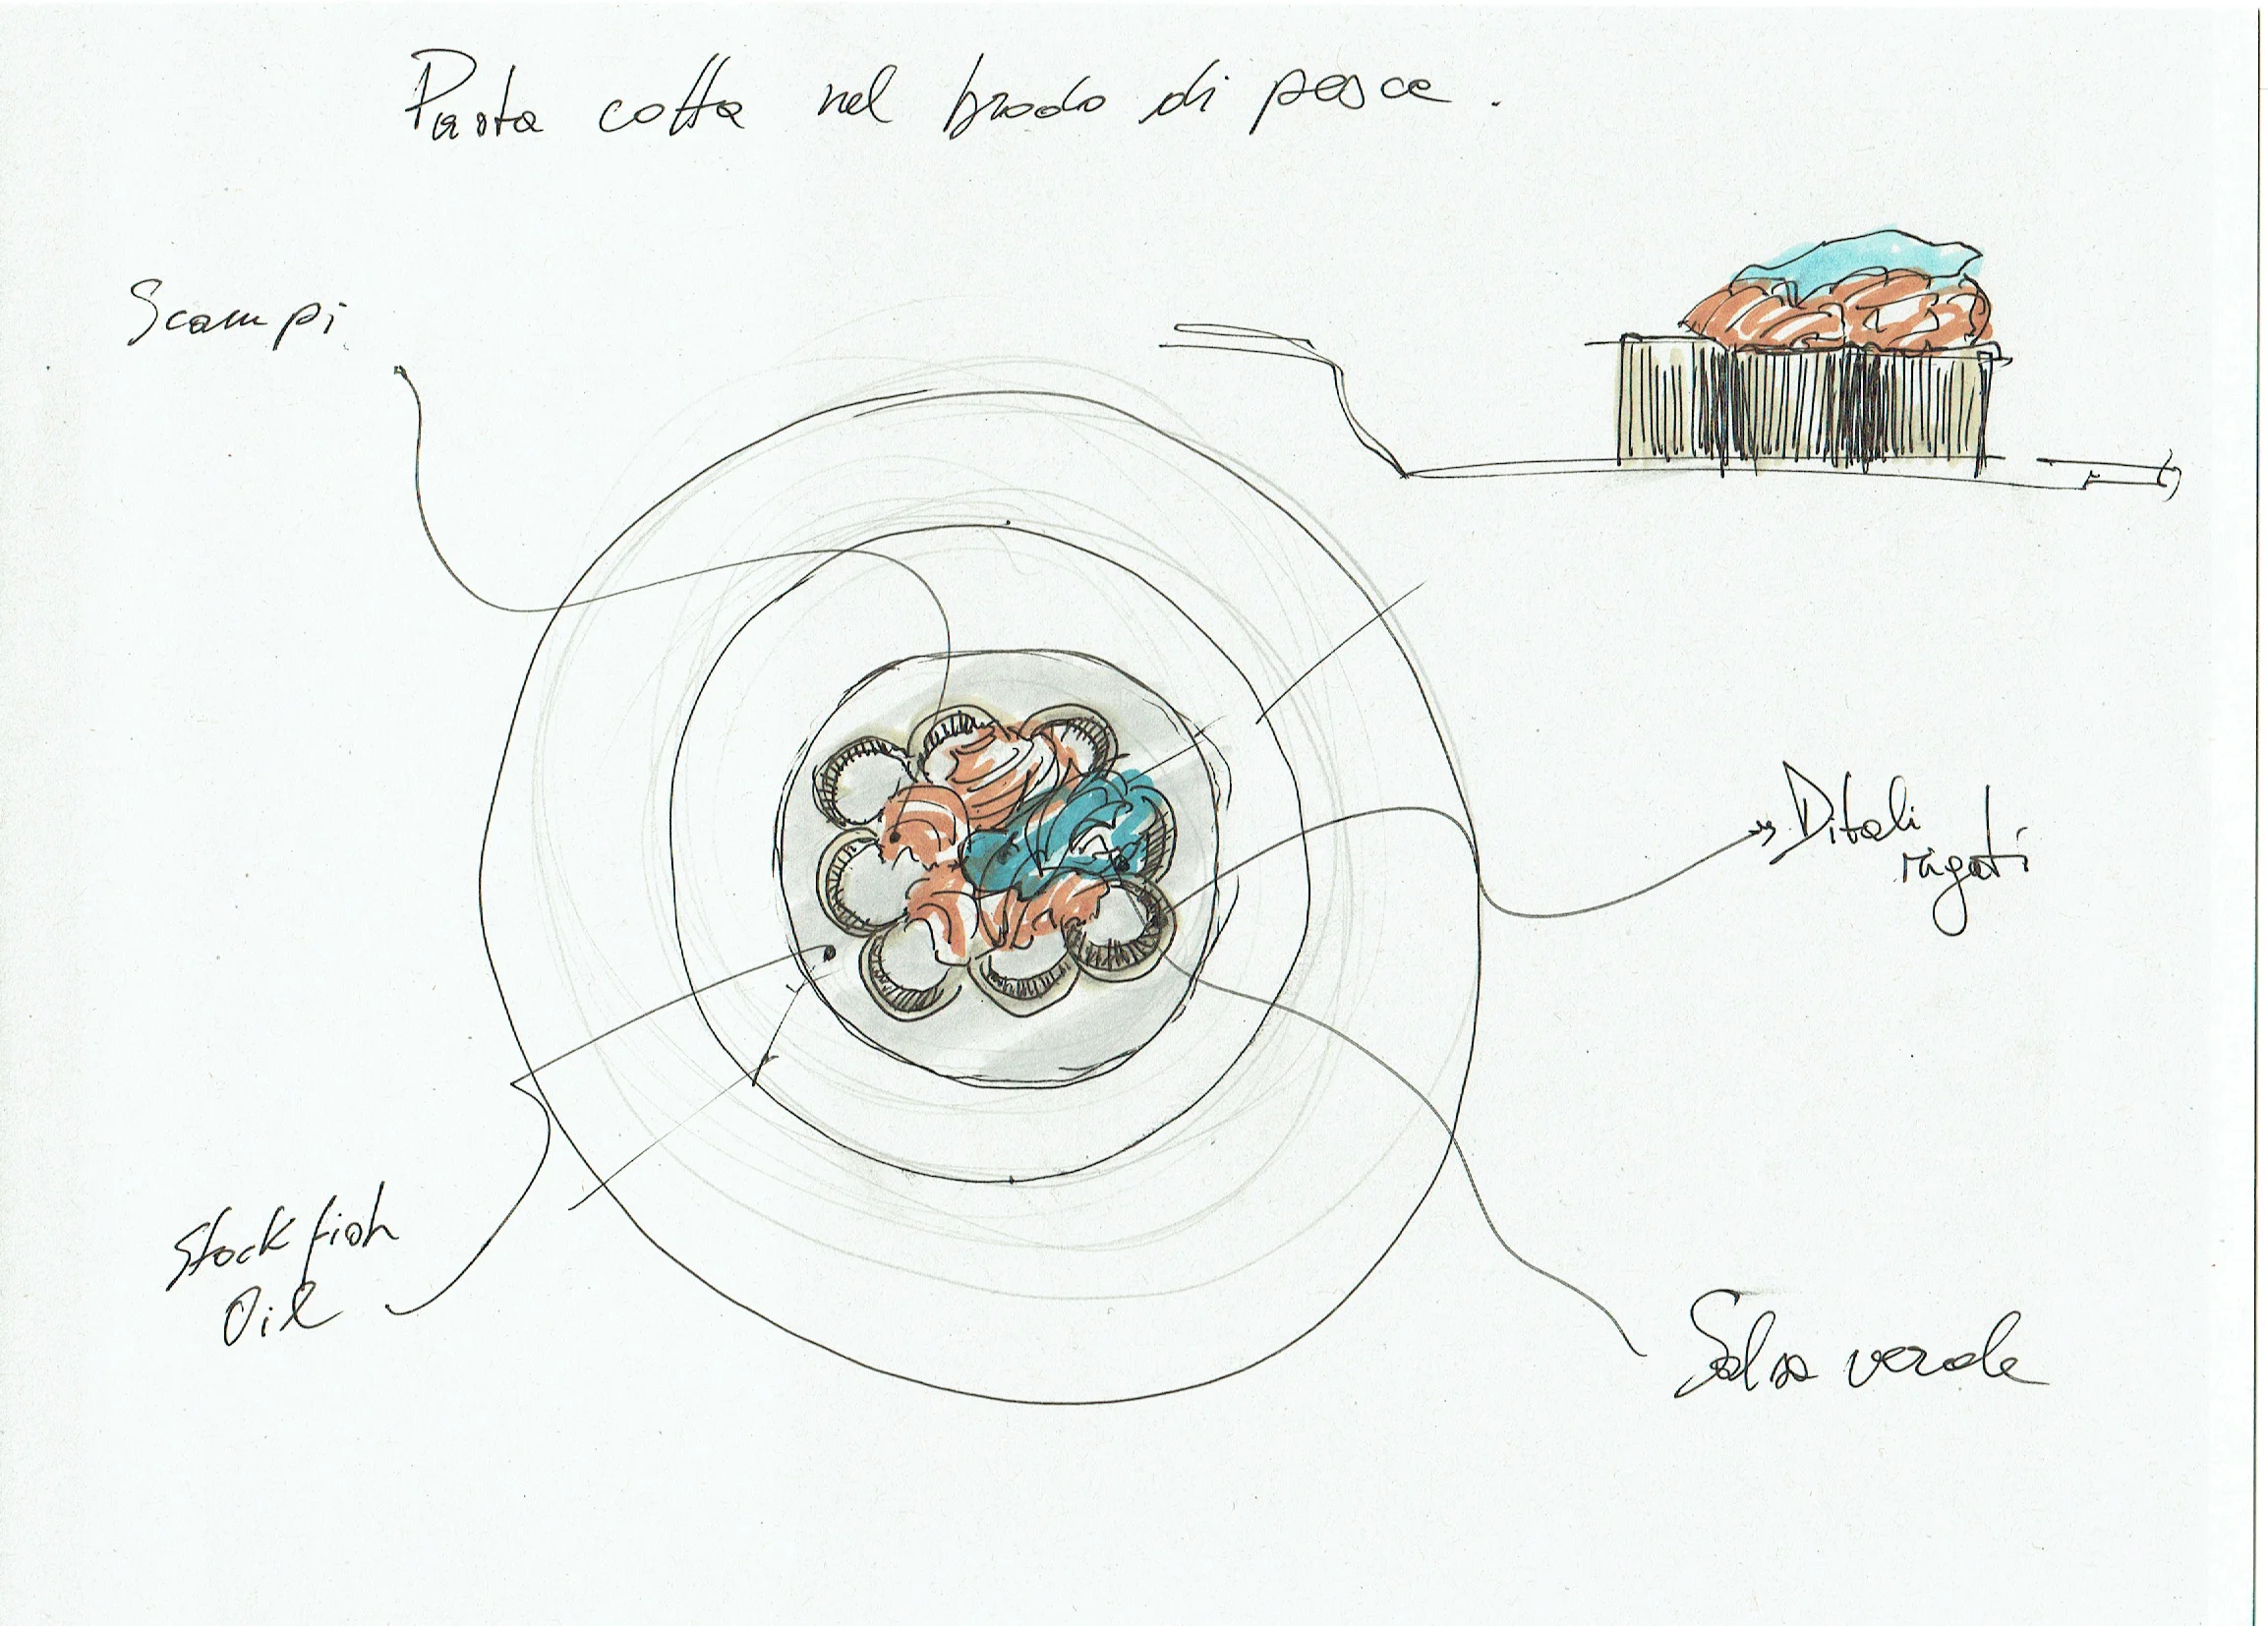 Pasta cotta nel brodo di pesce.
Scampi
Ditali
rigati
Stockfish
Oil
Salsa verde